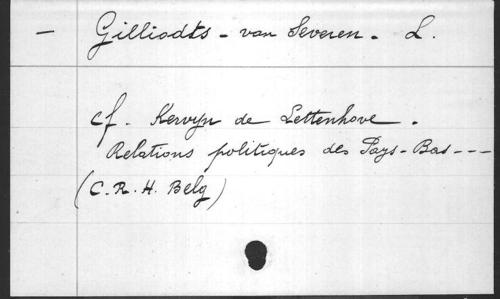 — Gilliodts - van Severen - L.
cf. Kervyn de Lettenhove.
Relations politiques des Pays-Bas ---
(C.R.H. Belg)